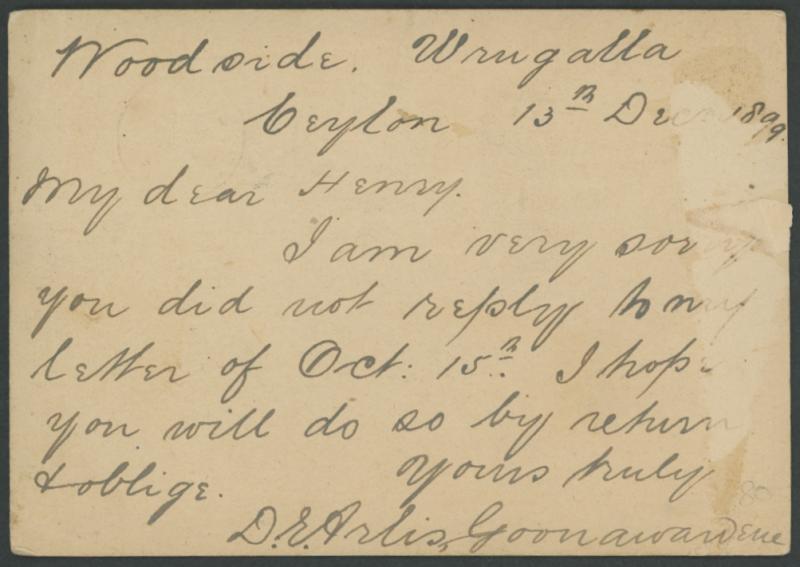 Woodside. Wrugalla
Ceylon 13th Dec 1899.
My dear Henry.
I am very sorry
you did not reply to my
letter of Oct: 15th. I hope
you will do so by return
& oblige. Yours truly
D. E. Arlis Goonawardene
80